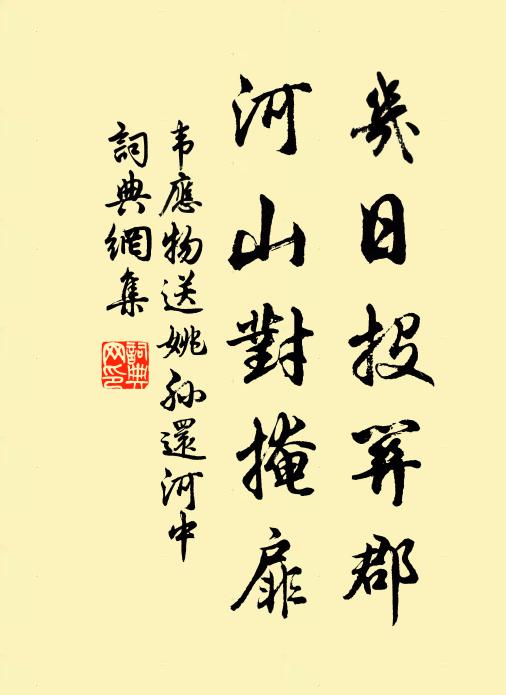 幾日投關郡
河山對掩扉
韦應物送姚孫還河中
詞典網集
詞典网印